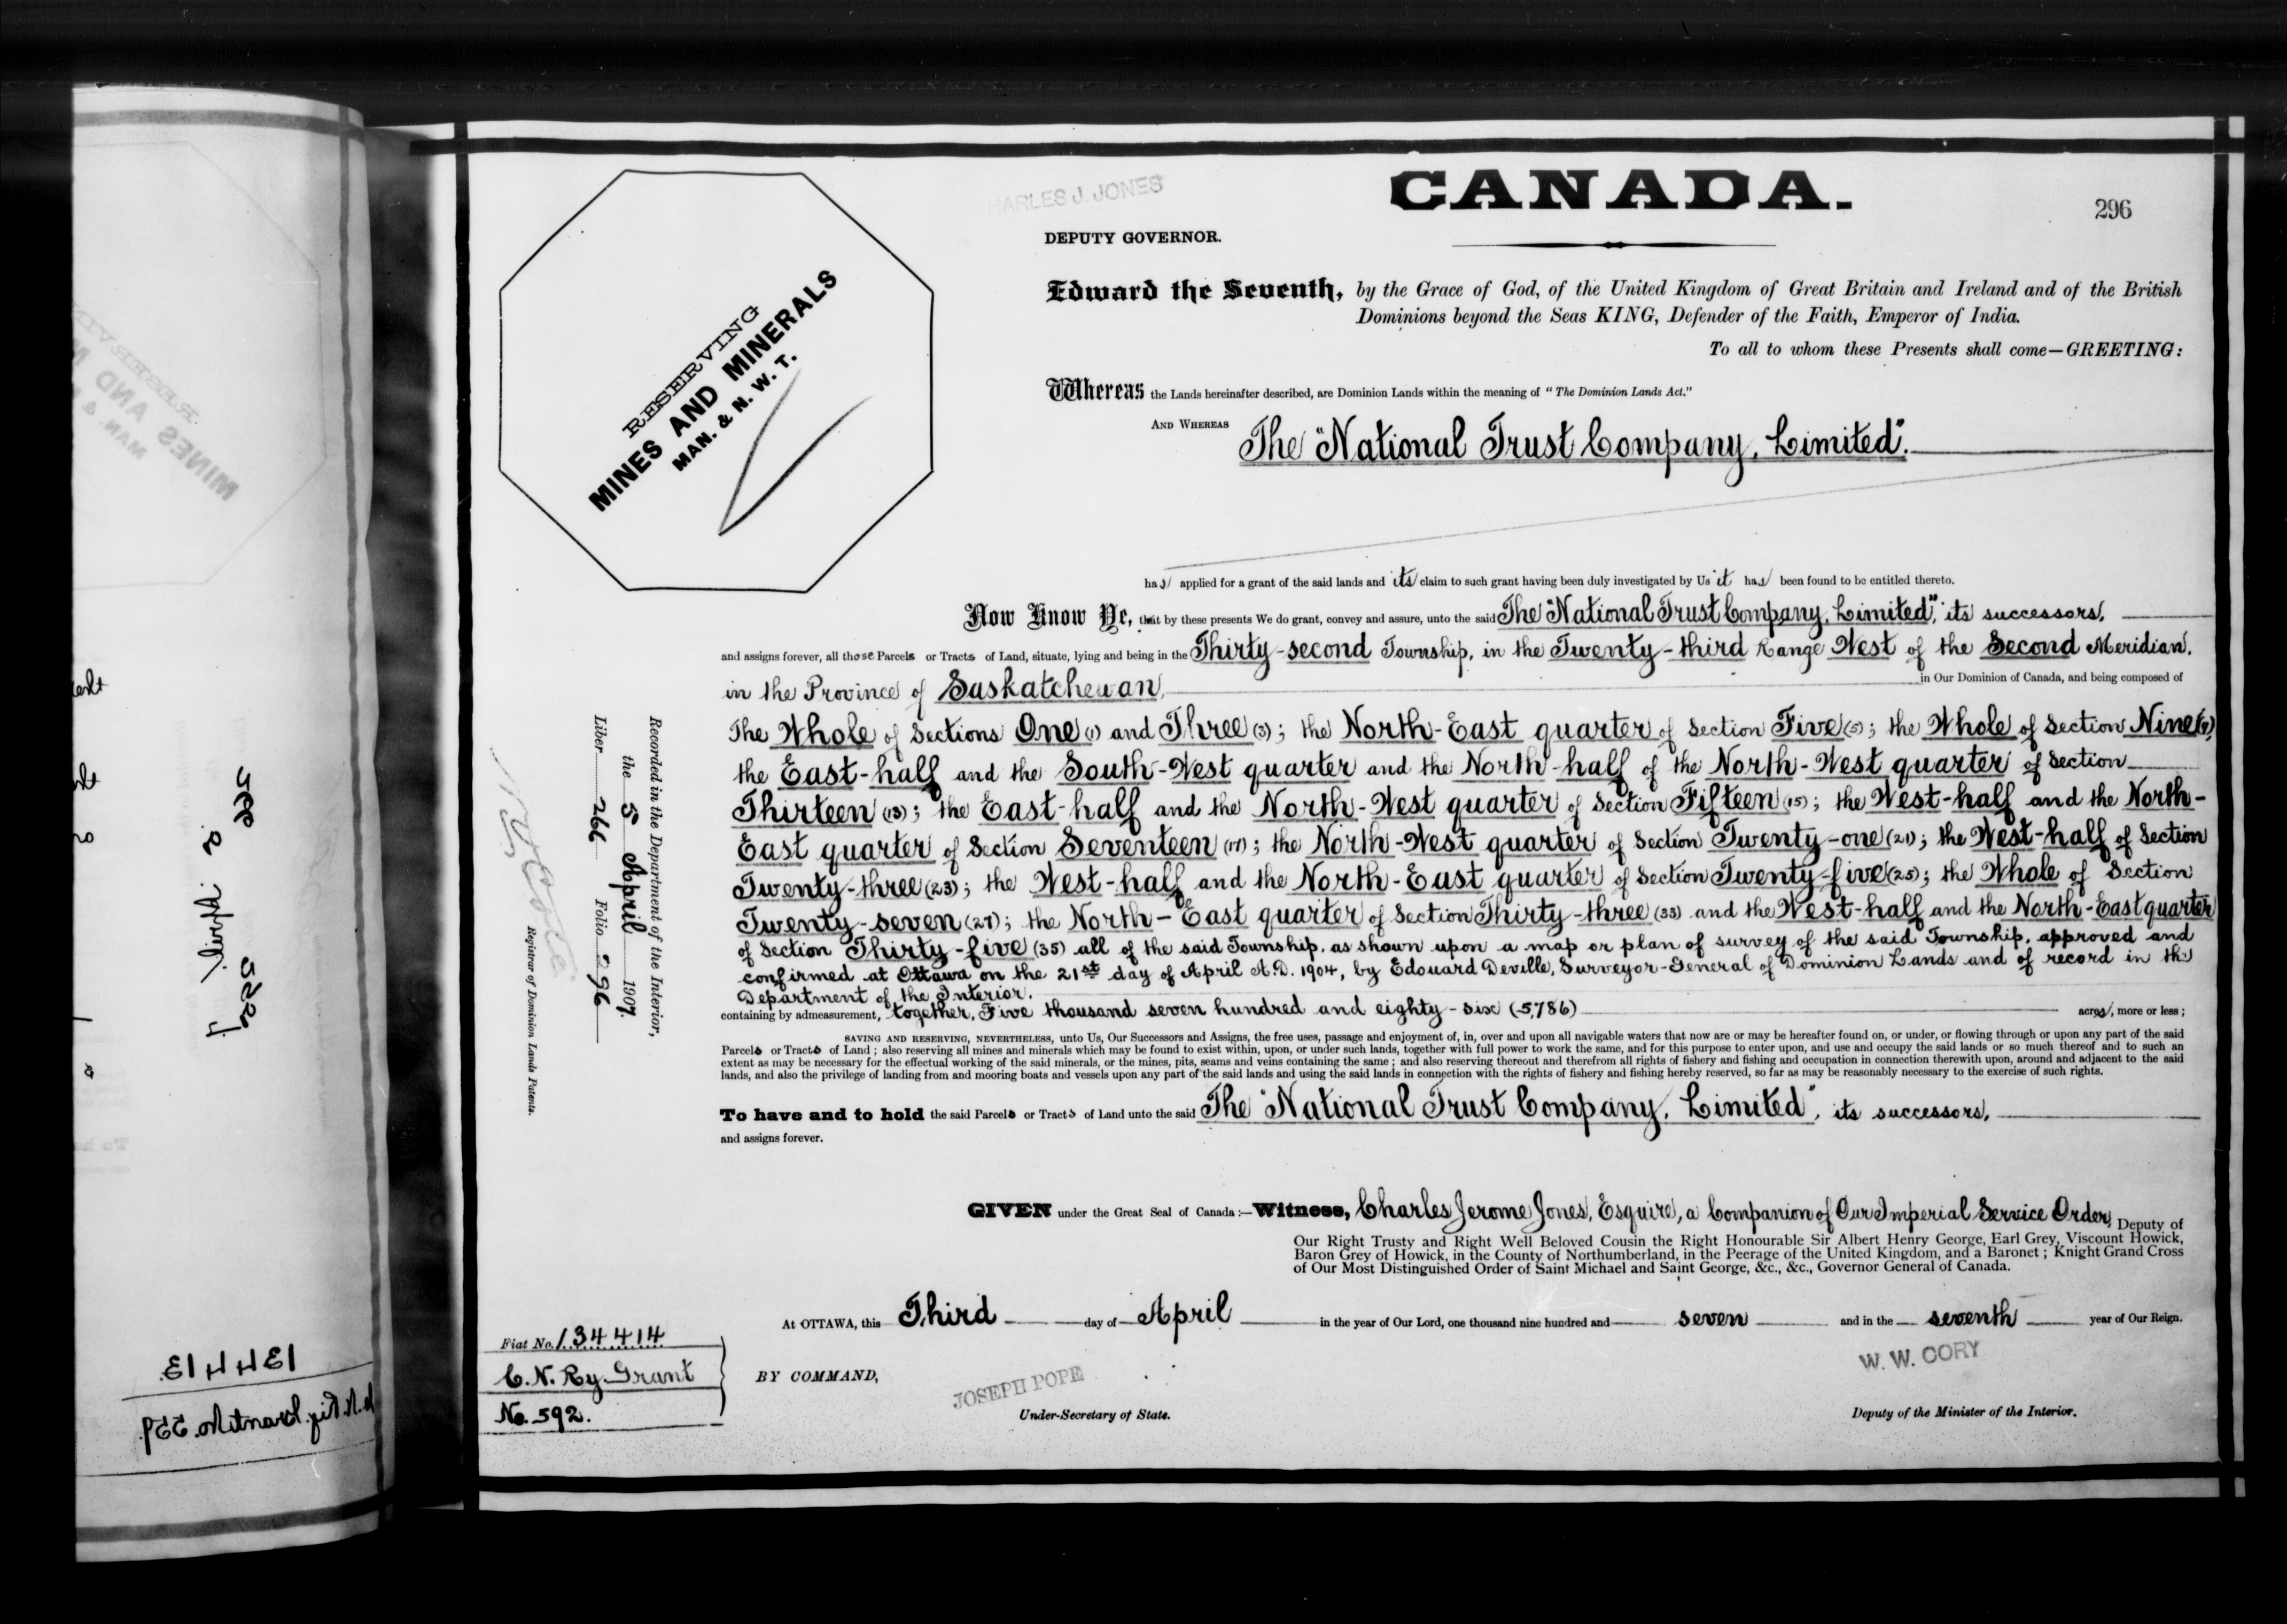 CHARLES J. JONES
CANADA.
296
DEPUTY GOVERNOR.
Edward the Seventh, by the Grace of God, of the United Kingdom of Great Britain and Ireland and of the British
Dominions beyond the Seas KING, Defender of the Faith, Emperor of India.
To all to whom these Presents shall come—GREETING:
RESERVING
MINES AND MINERALS
MAN. & N. W. T.
Whereas the Lands hereinafter described, are Dominion Lands within the meaning of "The Dominion Lands Act."
AND WHEREAS The "National Trust Company, Limited".
has applied for a grant of the said lands and its claim to such grant having been duly investigated by Us it has been found to be entitled thereto.
Now Know Ye, that by these presents We do grant, convey and assure, unto the said The "National Trust Company, Limited", its successors,
and assigns forever, all those Parcels or Tracts of Land, situate, lying and being in the Thirty-second Township, in the Twenty-third Range West of the Second Meridian,
in the Province of Saskatchewan, in Our Dominion of Canada, and being composed of
The Whole of Sections One (1) and Three (3); the North-East quarter of Section Five (5); the Whole of Section Nine (9),
the East-half and the South-West quarter and the North-half of the North-West quarter of Section
Thirteen (13); the East-half and the North-West quarter of Section Fifteen (15); the West-half and the North-
East quarter of Section Seventeen (17); the North-West quarter of Section Twenty-one (21); the West-half of Section
Twenty-three (23); the West-half and the North-East quarter of Section Twenty-five (25); the Whole of Section
Twenty-seven (27); the North-East quarter of Section Thirty-three (33) and the West-half and the North-East quarter
of Section Thirty-five (35) all of the said Township, as shown upon a map or plan of survey of the said Township, approved and
confirmed at Ottawa on the 21st day of April A.D. 1904, by Edouard Deville, Surveyor-General of Dominion Lands and of record in the
Department of the Interior.
containing by admeasurement, together, Five thousand seven hundred and eighty-six (5,786) acres, more or less;
SAVING AND RESERVING, NEVERTHELESS, unto Us, Our Successors and Assigns, the free uses, passage and enjoyment of, in, over and upon all navigable waters that now are or may be hereafter found on, or under, or flowing through or upon any part of the said
Parcels or Tracts of Land; also reserving all mines and minerals which may be found to exist within, upon, or under such lands, together with full power to work the same, and for this purpose to enter upon, and use and occupy the said lands or so much thereof and to such an
extent as may be necessary for the effectual working of the said minerals, or the mines, pits, seams and veins containing the same; and also reserving thereout and therefrom all rights of fishery and fishing and occupation in connection therewith upon, around and adjacent to the said
lands, and also the privilege of landing from and mooring boats and vessels upon any part of the said lands and using the said lands in connection with the rights of fishery and fishing hereby reserved, so far as may be reasonably necessary to the exercise of such rights.
To have and to hold the said Parcels or Tracts of Land unto the said The "National Trust Company, Limited", its successors,
and assigns forever.
Recorded in the Department of the Interior,
the 5 April 1907.
Liber 266 Folio 296
Registrar of Dominion Lands Patents.
GIVEN under the Great Seal of Canada:—Witness, Charles Jerome Jones, Esquire, a Companion of Our Imperial Service Order, Deputy of
Our Right Trusty and Right Well Beloved Cousin the Right Honourable Sir Albert Henry George, Earl Grey, Viscount Howick,
Baron Grey of Howick, in the County of Northumberland, in the Peerage of the United Kingdom, and a Baronet; Knight Grand Cross
of Our Most Distinguished Order of Saint Michael and Saint George, &c., &c., Governor General of Canada.
At OTTAWA, this Third day of April in the year of Our Lord, one thousand nine hundred and seven and in the seventh year of Our Reign.
Fiat No. 134414
C. N. Ry. Grant
No. 592.
BY COMMAND,
JOSEPH POPE
Under-Secretary of State.
W. W. CORY
Deputy of the Minister of the Interior.